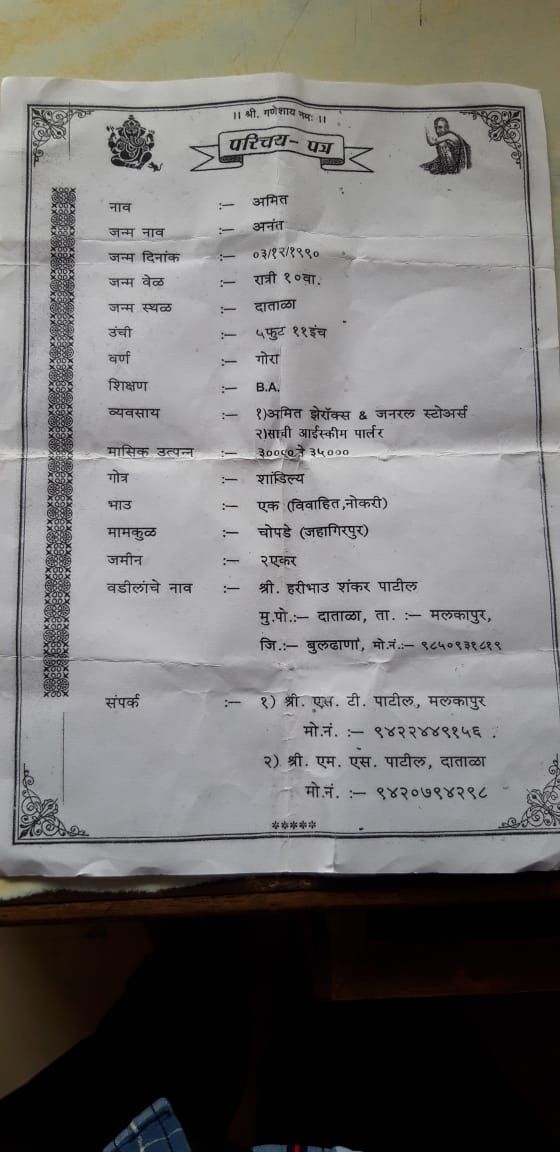 ।। श्री. गणेशाय नमः ।।
परिचय- पत्र
नाव :– अमित
जन्म नाव :– अनंत
जन्म दिनांक :– ०३/१२/१९९०
जन्म वेळ :– रात्री १०वा.
जन्म स्थळ :– दाताळा
उंची :– ५फुट ११इंच
वर्ण :– गोरा
शिक्षण :– B.A.
व्यवसाय :– १)अमित झेरॉक्स & जनरल स्टोअर्स
२)साची आईस्कीम पार्लर
मासिक उत्पन्न :– ३०००० ते ३५०००
गोत्र :– शांडिल्य
भाउ :– एक (विवाहित,नोकरी)
मामकुळ :– चोपडे (जहागिरपुर)
जमीन :– २एकर
वडीलांचे नाव :– श्री. हरीभाउ शंकर पाटील
मु.पो.:– दाताळा, ता. :– मलकापुर,
जि.:– बुलढाणा, मो.नं.:– ९८५०९३१८१९
संपर्क :– १) श्री. एस. टी. पाटील, मलकापुर
मो.नं. :– ९४२२४४९१५६ .
२) श्री. एम. एस. पाटील, दाताळा
मो.नं. :– ९४२०७९४२९८
*****